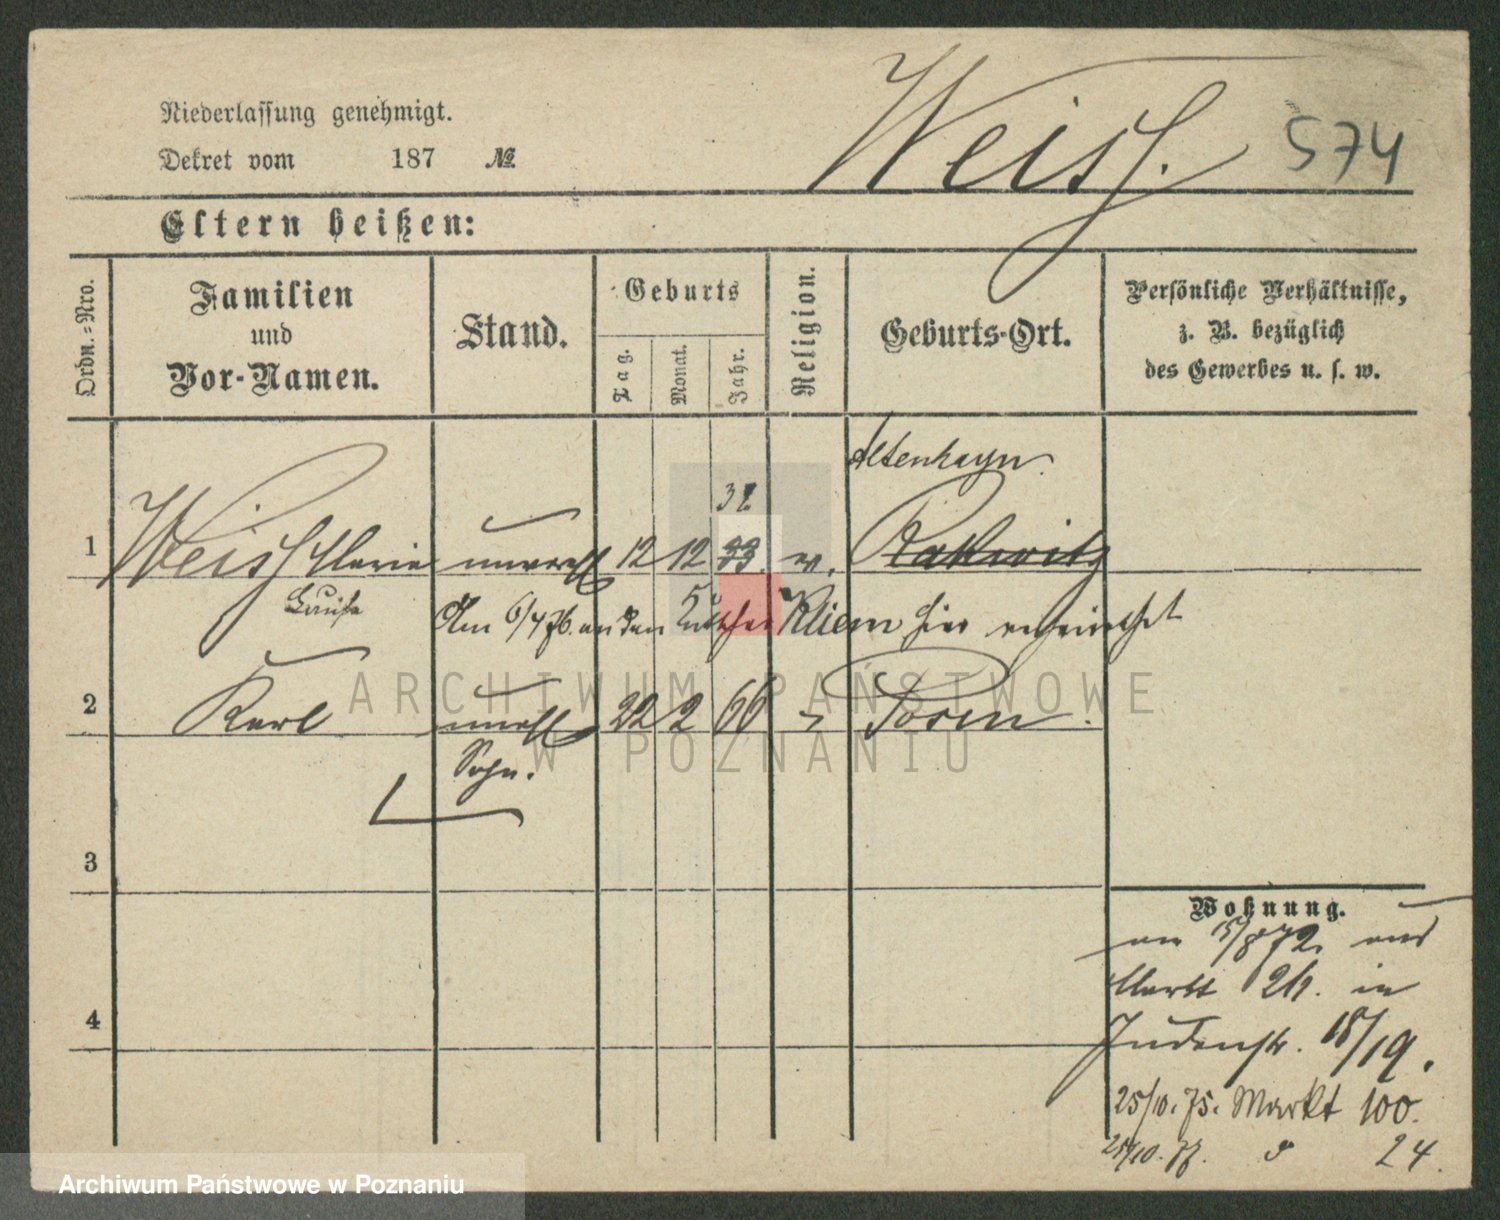 Weiß. 574
Niederlassung genehmigt.
Dekret vom 187 №
Eltern heißen:
Ordn.=Nro.
Familien
und
Vor-Namen.
Stand.
Geburts
Tag.
Monat.
Jahr.
Religion.
Geburts-Ort.
Persönliche Verhältnisse,
z. B. bezüglich
des Gewerbes u. s. w.
Altenhayn.
32
1 Weiß Marie unvereh 12 12 33. ev. Rakwitz
Louise
Am 6/4 76. an den Kutscher Kliem hier verheirathet
2 Karl unehl 22 2 66 Posen.
Sohn.
3
4
Wohnung.
am 15/8 72. aus
Markt 26. in
Judenstr. 18/19.
25/10. 75. Markt 100.
24.
ARCHIWUM PAŃSTWOWE
W POZNANIU
Archiwum Państwowe w Poznaniu